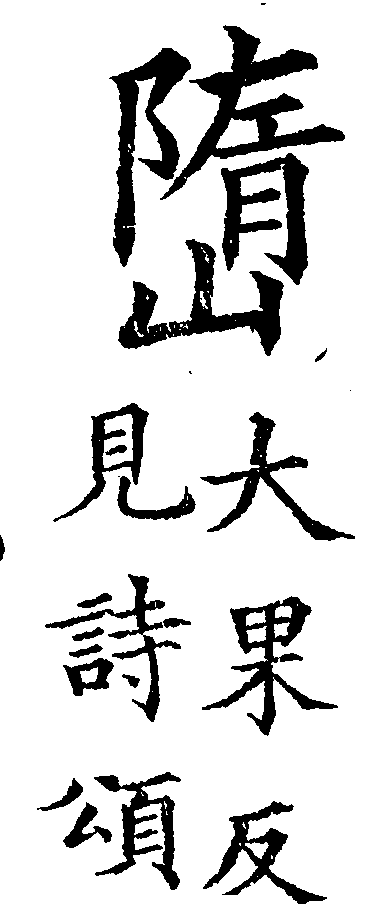 嶞
大果反
見詩頌